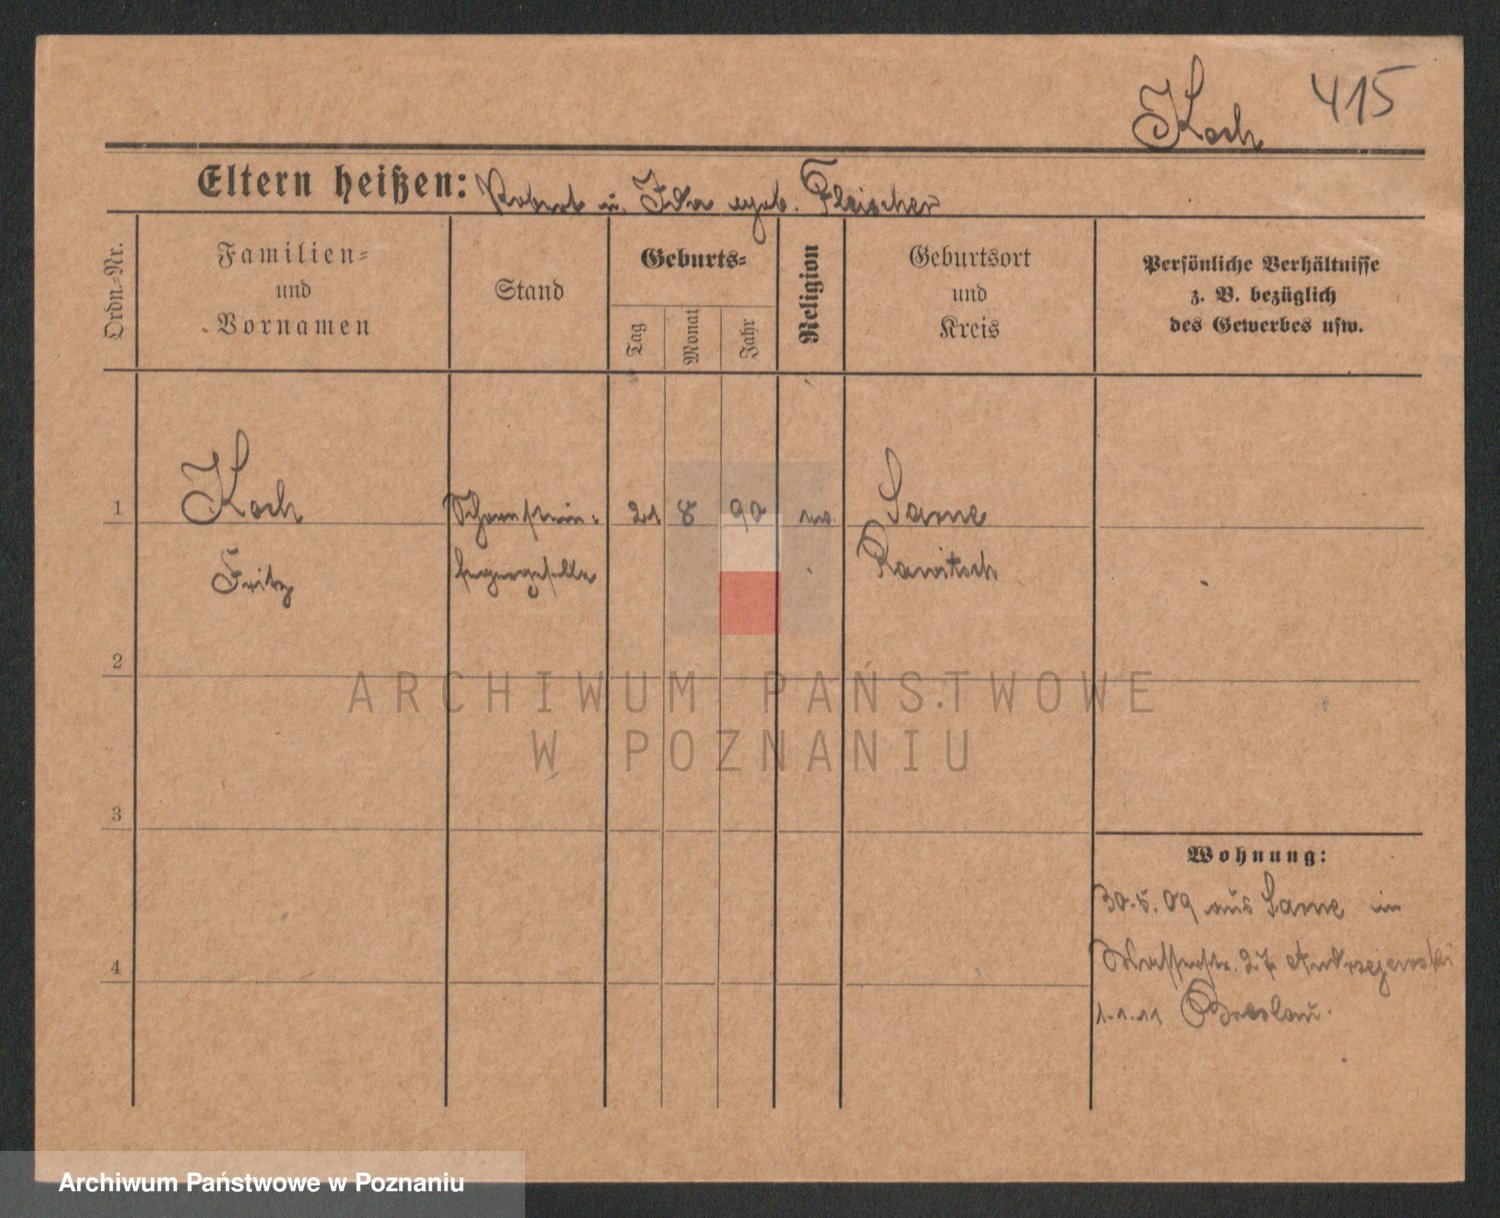 Koch 415
Eltern heißen: Robert u. Ida geb. Fleischer
Ordn.=Nr.
Familien=
und
Vornamen
Stand
Geburts=
Tag
Monat
Jahr
Religion
Geburtsort
und
Kreis
Persönliche Verhältnisse
z. B. bezüglich
des Gewerbes usw.
1 Koch Schornstein- 21 8 90 Sarne
Fritz fegergeselle Rawitsch
2
ARCHIWUM PAŃSTWOWE
W POZNANIU
3
Wohnung:
30.5.09 aus Sarne in
Wasserstr. 27 Andrzejewski
4
1.1.11 Breslau.
Archiwum Państwowe w Poznaniu